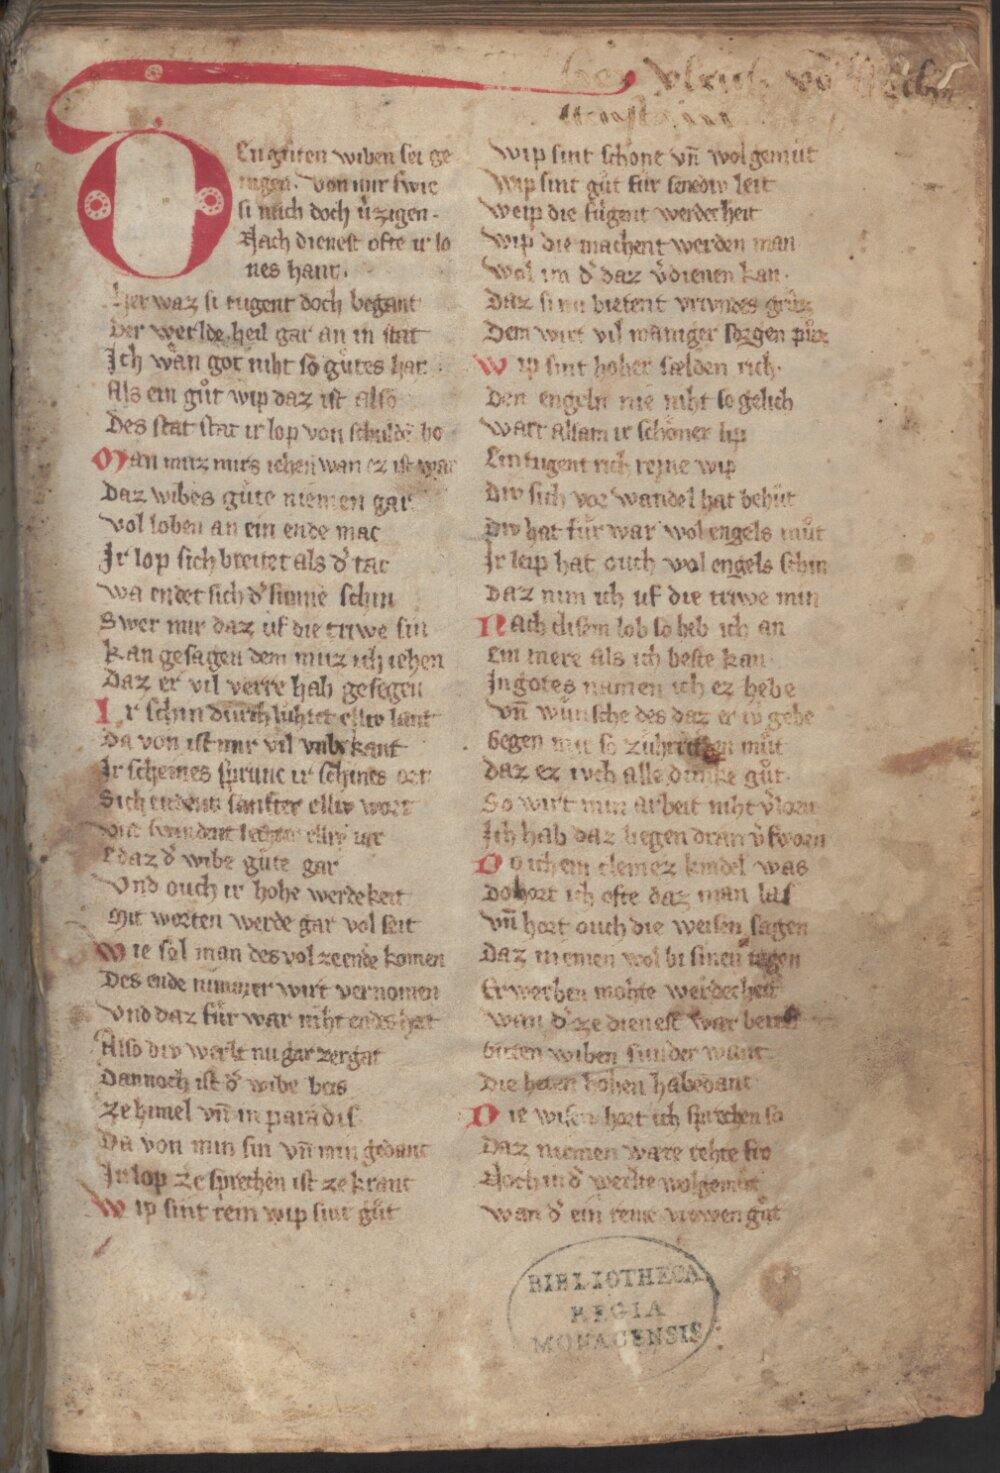 vlrich vō
Den gůten wiben sei ge
nigen. von mir swie
si mich doch v̾zigen.
Nach dienest ofte ir lo
nes hant.
Hei waz si tugent doch begant
Der werlde heil gar an in stat
Ich wæn got niht so gůtes hat
Als ein gůt wip daz ist also
Des stat stat ir lop von schulden ho
Man muz mirs iehen wan ez ist war
Daz wibes gůte niemen gar
Vol loben an ein ende mac
Ir lop sich breitet als d̾ tac
wa endet sich d̾ sunne schin
Swer mir daz uf die triwe sin
Kan gesagen dem muz ich iehen
Daz er vil verre hab gesegen
Ir schin durchlühtet elliv lant
Da von ist mir vil vnbekant
Ir scheines sprunc ir schines ort
Sich endent sanfter elliv wort
E daz d̾ wibe gůte gar
Vnd ouch ir hohe werdekeit
Mit worten werde gar vol seit
Wie sol man des vol ze ende komen
Des ende nimmer wirt vernomen
Vnd daz für war niht endes hat
Also div werlt nu gar zergat
Dannoch ist d̾ wibe
ze himel vn̄ in paradis
Da von min sin vn̄ min gedanc
Ir lop ze sprechen ist ze kranc
Wip sint rein wip sint gůt
Wip sint schone vn̄ wol gemůt
Wip sint gůt für senediv leit
Weip die fůgent werdecheit
Wip die machent werden man
Wol im d̾ daz v̾dienen kan.
Daz si im bietent vrivndes grůz
Dem wirt vil maniger sorgen půz
Wip sint hoher sælden rich.
Den engeln nie niht so gelich
Wart alsam ir schöner lip
Ein tugent rich reine wip
Div sich vor wandel hat behůt
Div hat für war wol engels můt
Ir leip hat ouch wol engels schin
Daz nim ich uf die triwe min
Nach disem lob so heb ich an
Ein mere als ich beste kan
In gotes namen ich ez hebe
Vn̄ wünsche des daz er iv gebe
Gegen mir so zühtichen můt
Daz ez ivch alle dunke gůt.
So wirt min arbeit niht v̾lorn
Ich hab daz liegen dran v̾sworn
Do ich ein cleinez kindel was
Do hort ich ofte daz man las
Vn̄ hort ouch die weisen sagen
Daz niemen wol bi sinen tagen
Erwerben mohte werdecheit
Wan d̾ ze dienest war bereit
Guten wiben sunder wanc
Die heten hohen habedanc
Die wisen hort ich sprechen so
Daz niemen ware rehte fro
Noch in d̾ werlte wolgemůt
Wan d̾ ein reine vrowen gůt
BIBLIOTHECA
REGIA
MONACENSIS